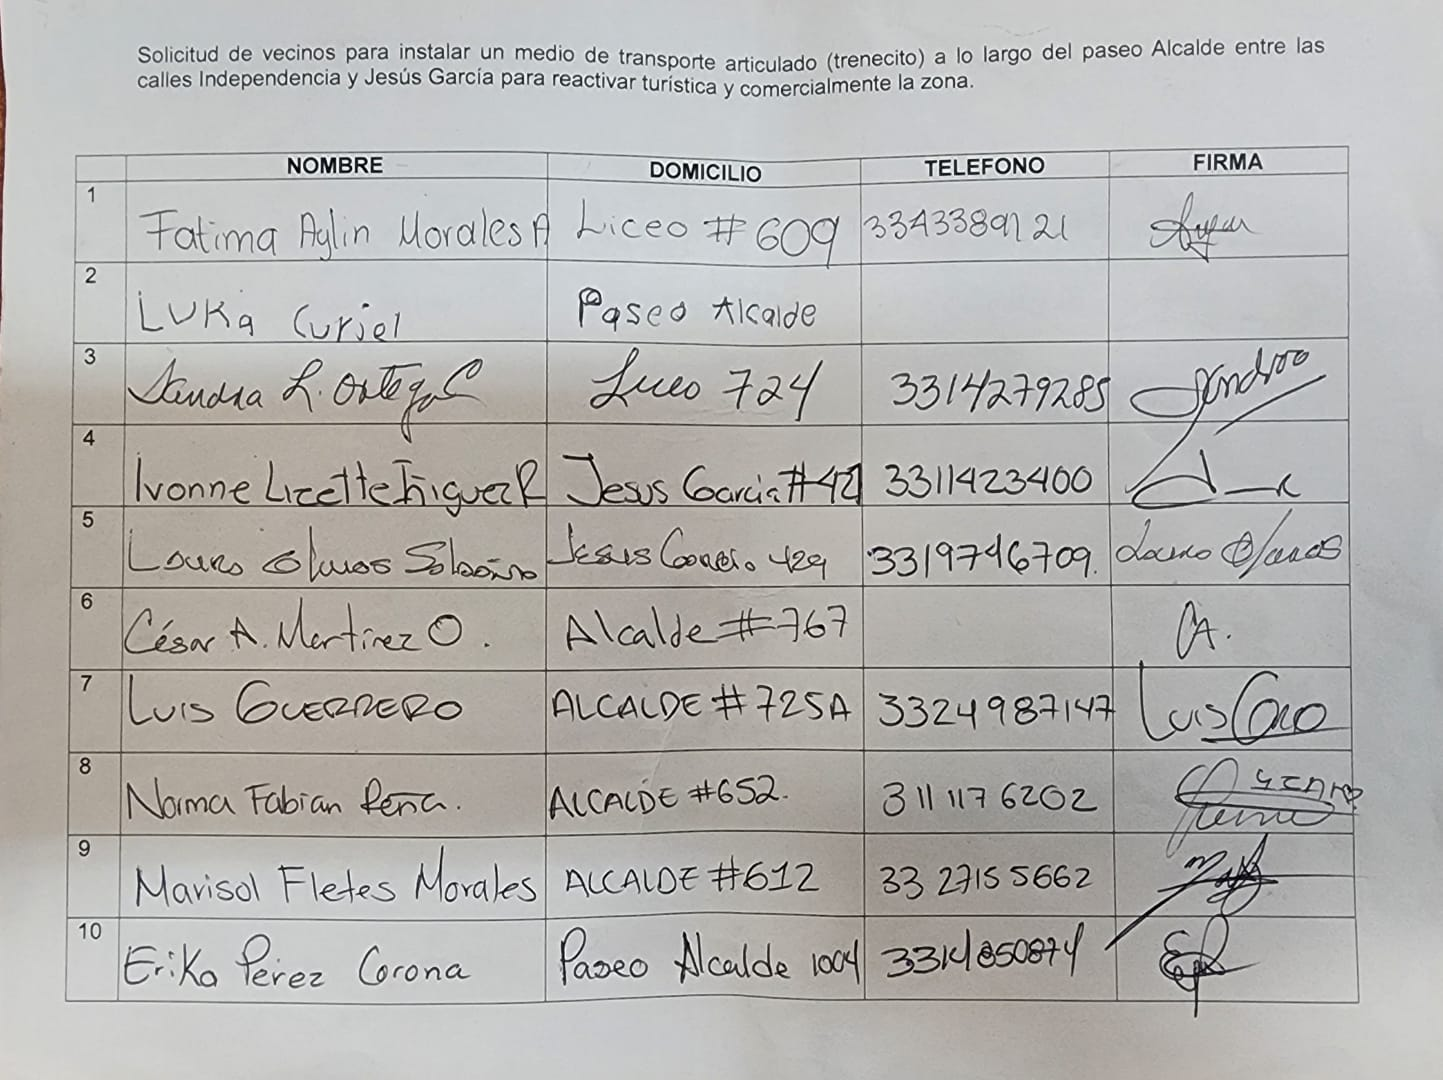 Solicitud de vecinos para instalar un medio de transporte articulado (trenecito) a lo largo del paseo Alcalde entre las
calles Independencia y Jesús García para reactivar turística y comercialmente la zona.
NOMBRE DOMICILIO TELEFONO FIRMA
1 Fatima Aylin Morales A Liceo # 609 3343389121
2 Luka Curiel Paseo Alcalde
3 Sandra L. Ortega C Liceo 724 3314279285
4 Ivonne Lizette Iñiguez R Jesus Garcia #429 3311423400
5 Olmos Jesus Garcia 429 3319746709.
6 César A. Martínez O. Alcalde #767 CA.
7 LUIS GUERRERO ALCALDE # 725A 3324987147 Luis
8 Norma Fabian Peña. ALCALDE #652. 311 117 6202
9 Marisol Fletes Morales ALCALDE #612 33 2715 5662
10 Erika Pérez Corona Paseo Alcalde 1004 3314850874